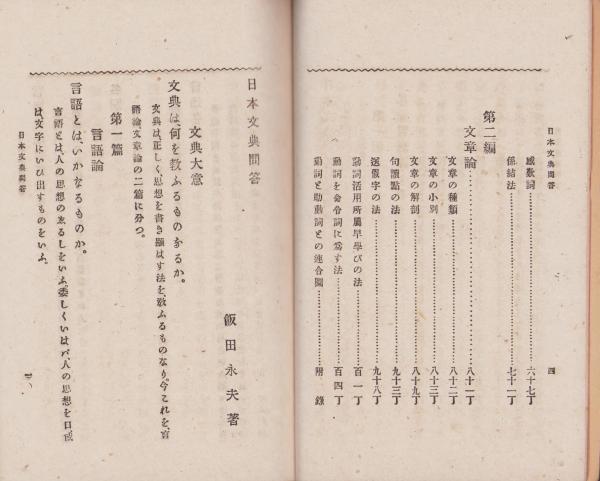 日本文典問答
四
感歎詞……六十七丁
係結法……七十一丁
第二編
文章論……八十一丁
文章の種類……八十二丁
文章の小別……八十三丁
文章の解剖……八十九丁
句讀點の法……九十三丁
送假字の法……九十八丁
動詞活用所屬早學びの法……百一丁
動詞を命令詞に爲す法……百四丁
動詞と助動詞との連合圖……附錄
日本文典問答
飯田永夫著
文典大意
文典は、何を敎ふるものなるか。
文典は、正しく、思想を書き顯はす法を、敎ふるものなり。今これを、言
語論文章論の二篇に分つ。
第一篇
言語論
言語とは、いかなるものか。
言語とは、人の思想のゑるしをいふ、委しくいはヾ、人の思想を口或
は、文字にいひ出すものをいふ。
日本文典問答